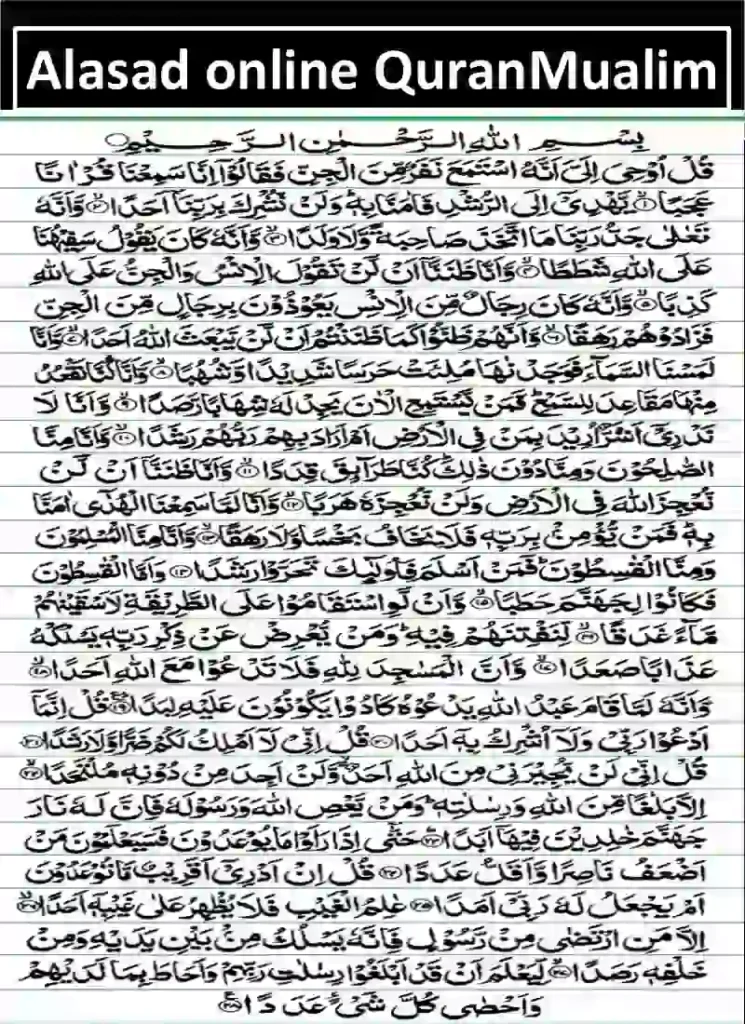 Alasad online QuranMualim
بِسْمِ اللهِ الرَّحْمٰنِ الرَّحِيْمِ
قُلْ اُوْحِيَ اِلَيَّ اَنَّهُ اسْتَمَعَ نَفَرٌ مِّنَ الْجِنِّ فَقَالُوْٓا اِنَّا سَمِعْنَا قُرْاٰنًا
عَجَبًا ۙ‏﴿۱﴾ يَّهْدِيْٓ اِلَى الرُّشْدِ فَاٰمَنَّا بِهٖ ؕ وَلَنْ نُّشْرِكَ بِرَبِّنَآ اَحَدًا ۙ﴿۲﴾ وَّاَنَّهٗ
تَعٰلٰى جَدُّ رَبِّنَا مَا اتَّخَذَ صَاحِبَةً وَّلَا وَلَدًا ۙ﴿۳﴾ وَّاَنَّهٗ كَانَ يَقُوْلُ سَفِيْهُنَا
عَلَى اللهِ شَطَطًا ۙ﴿۴﴾ وَّاَنَّا ظَنَنَّآ اَنْ لَّنْ تَقُوْلَ الْاِنْسُ وَالْجِنُّ عَلَى اللهِ
كَذِبًا ۙ﴿۵﴾ وَّاَنَّهٗ كَانَ رِجَالٌ مِّنَ الْاِنْسِ يَعُوْذُوْنَ بِرِجَالٍ مِّنَ الْجِنِّ
فَزَادُوْهُمْ رَهَقًا ۙ﴿۶﴾ وَّاَنَّهُمْ ظَنُّوْا كَمَا ظَنَنْتُمْ اَنْ لَّنْ يَّبْعَثَ اللهُ اَحَدًا ۙ﴿۷﴾ وَّاَنَّا
لَمَسْنَا السَّمَآءَ فَوَجَدْنٰهَا مُلِئَتْ حَرَسًا شَدِيْدًا وَّشُهُبًا ۙ﴿۸﴾ وَّاَنَّا كُنَّا نَقْعُدُ
مِنْهَا مَقَاعِدَ لِلسَّمْعِ ؕ فَمَنْ يَّسْتَمِعِ الْاٰنَ يَجِدْ لَهٗ شِهَابًا رَّصَدًا ۙ﴿۹﴾ وَّاَنَّا لَا
نَدْرِيْٓ اَشَرٌّ اُرِيْدَ بِمَنْ فِي الْاَرْضِ اَمْ اَرَادَ بِهِمْ رَبُّهُمْ رَشَدًا ۙ﴿۱۰﴾ وَّاَنَّا مِنَّا
الصّٰلِحُوْنَ وَمِنَّا دُوْنَ ذٰلِكَ ؕ كُنَّا طَرَآئِقَ قِدَدًا ۙ﴿۱۱﴾ وَّاَنَّا ظَنَنَّآ اَنْ لَّنْ
نُّعْجِزَ اللهَ فِي الْاَرْضِ وَلَنْ نُّعْجِزَهٗ هَرَبًا ۙ﴿۱۲﴾ وَّاَنَّا لَمَّا سَمِعْنَا الْهُدٰٓى اٰمَنَّا
بِهٖ ؕ فَمَنْ يُّؤْمِنْۢ بِرَبِّهٖ فَلَا يَخَافُ بَخْسًا وَّلَا رَهَقًا ۙ﴿۱۳﴾ وَّاَنَّا مِنَّا الْمُسْلِمُوْنَ
وَمِنَّا الْقٰسِطُوْنَ ؕ فَمَنْ اَسْلَمَ فَاُولٰٓئِكَ تَحَرَّوْا رَشَدًا ﴿۱۴﴾ وَاَمَّا الْقٰسِطُوْنَ
فَكَانُوْا لِجَهَنَّمَ حَطَبًا ۙ﴿۱۵﴾ وَّاَنْ لَّوِ اسْتَقَامُوْا عَلَى الطَّرِيْقَةِ لَاَسْقَيْنٰهُمْ
مَّآءً غَدَقًا ۙ﴿۱۶﴾ لِّنَفْتِنَهُمْ فِيْهِ ؕ وَمَنْ يُّعْرِضْ عَنْ ذِكْرِ رَبِّهٖ يَسْلُكْهُ
عَذَابًا صَعَدًا ۙ﴿۱۷﴾ وَّاَنَّ الْمَسٰجِدَ لِلّٰهِ فَلَا تَدْعُوْا مَعَ اللهِ اَحَدًا ۙ﴿۱۸﴾
وَّاَنَّهٗ لَمَّا قَامَ عَبْدُ اللهِ يَدْعُوْهُ كَادُوْا يَكُوْنُوْنَ عَلَيْهِ لِبَدًا ؕ﴿۱۹﴾ قُلْ اِنَّمَآ
اَدْعُوْا رَبِّيْ وَلَآ اُشْرِكُ بِهٖٓ اَحَدًا ﴿۲۰﴾ قُلْ اِنِّيْ لَآ اَمْلِكُ لَكُمْ ضَرًّا وَّلَا رَشَدًا ﴿۲۱﴾
قُلْ اِنِّيْ لَنْ يُّجِيْرَنِيْ مِنَ اللهِ اَحَدٌ ۙ وَّلَنْ اَجِدَ مِنْ دُوْنِهٖ مُلْتَحَدًا ۙ﴿۲۲﴾
اِلَّا بَلٰغًا مِّنَ اللهِ وَرِسٰلٰتِهٖ ؕ وَمَنْ يَّعْصِ اللهَ وَرَسُوْلَهٗ فَاِنَّ لَهٗ نَارَ
جَهَنَّمَ خٰلِدِيْنَ فِيْهَآ اَبَدًا ؕ﴿۲۳﴾ حَتّٰٓى اِذَا رَاَوْا مَا يُوْعَدُوْنَ فَسَيَعْلَمُوْنَ مَنْ
اَضْعَفُ نَاصِرًا وَّاَقَلُّ عَدَدًا ﴿۲۴﴾ قُلْ اِنْ اَدْرِيْٓ اَقَرِيْبٌ مَّا تُوْعَدُوْنَ
اَمْ يَجْعَلُ لَهٗ رَبِّيْٓ اَمَدًا ﴿۲۵﴾ عٰلِمُ الْغَيْبِ فَلَا يُظْهِرُ عَلٰى غَيْبِهٖٓ اَحَدًا ۙ﴿۲۶﴾
اِلَّا مَنِ ارْتَضٰى مِنْ رَّسُوْلٍ فَاِنَّهٗ يَسْلُكُ مِنْۢ بَيْنِ يَدَيْهِ وَمِنْ
خَلْفِهٖ رَصَدًا ۙ﴿۲۷﴾ لِّيَعْلَمَ اَنْ قَدْ اَبْلَغُوْا رِسٰلٰتِ رَبِّهِمْ وَاَحَاطَ بِمَا لَدَيْهِمْ
وَاَحْصٰى كُلَّ شَيْءٍ عَدَدًا ﴿۲۸﴾